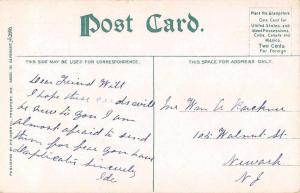 Post Card.
Place the Stamp Here
One Cent for
United States
and Island
Possessions,
Cuba, Canada and
Mexico
Two Cents
For Foreign
THIS SIDE MAY BE USED FOR CORRESPONDENCE.
THIS SPACE FOR ADDRESS ONLY.
Dear Friend Will
I hope these cards will
be new to you I am
almost afraid to send
them for fear you have
duplicates Sincerely
Ida
Mr Wm A
105 Walnut St.
Newark
N J